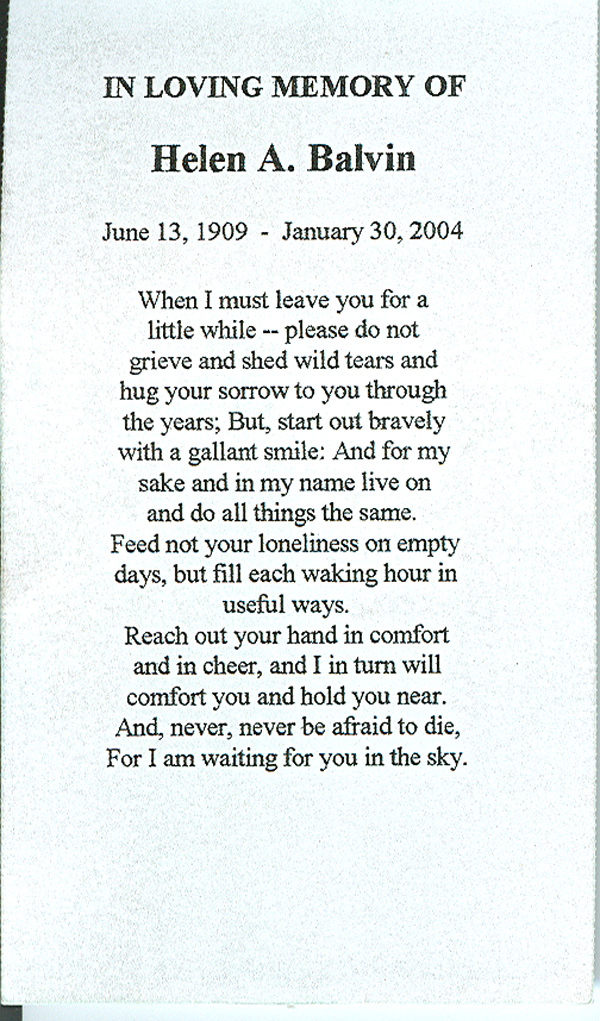 IN LOVING MEMORY OF
Helen A. Balvin
June 13, 1909 - January 30, 2004
When I must leave you for a
little while -- please do not
grieve and shed wild tears and
hug your sorrow to you through
the years; But, start out bravely
with a gallant smile: And for my
sake and in my name live on
and do all things the same.
Feed not your loneliness on empty
days, but fill each waking hour in
useful ways.
Reach out your hand in comfort
and in cheer, and I in turn will
comfort you and hold you near.
And, never, never be afraid to die,
For I am waiting for you in the sky.